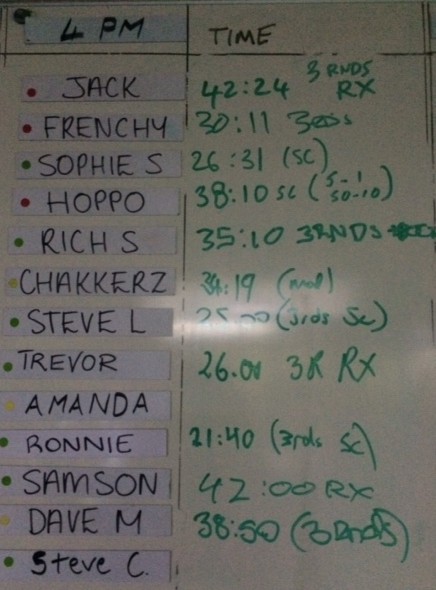 4 PM TIME
JACK 42:24 3 RNDS RX
FRENCHY 30:11
SOPHIE S 26:31 (SC)
HOPPO 38:10 SC (5-1 50-10)
RICH S 35:10 3RNDS
CHAKKERZ :19 (mod)
STEVE L (3rds Sc)
TREVOR 3R RX
AMANDA
RONNIE 21:40 (3rds Sc)
SAMSON 42:00 RX
DAVE M 38:50 (3 Rnds)
Steve C.